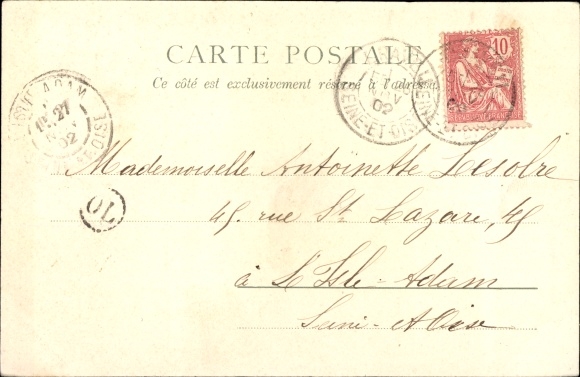 CARTE POSTALE
Ce côté est exclusivement réservé à l'adresse
10
L'ISLE-ADAM
27
02
OISE
02
SEINE-ET-OISE
OL
Mademoiselle Antoinette Lesolre
49. rue St Lazare, 49
à L'Isle-Adam
Seine-et-Oise